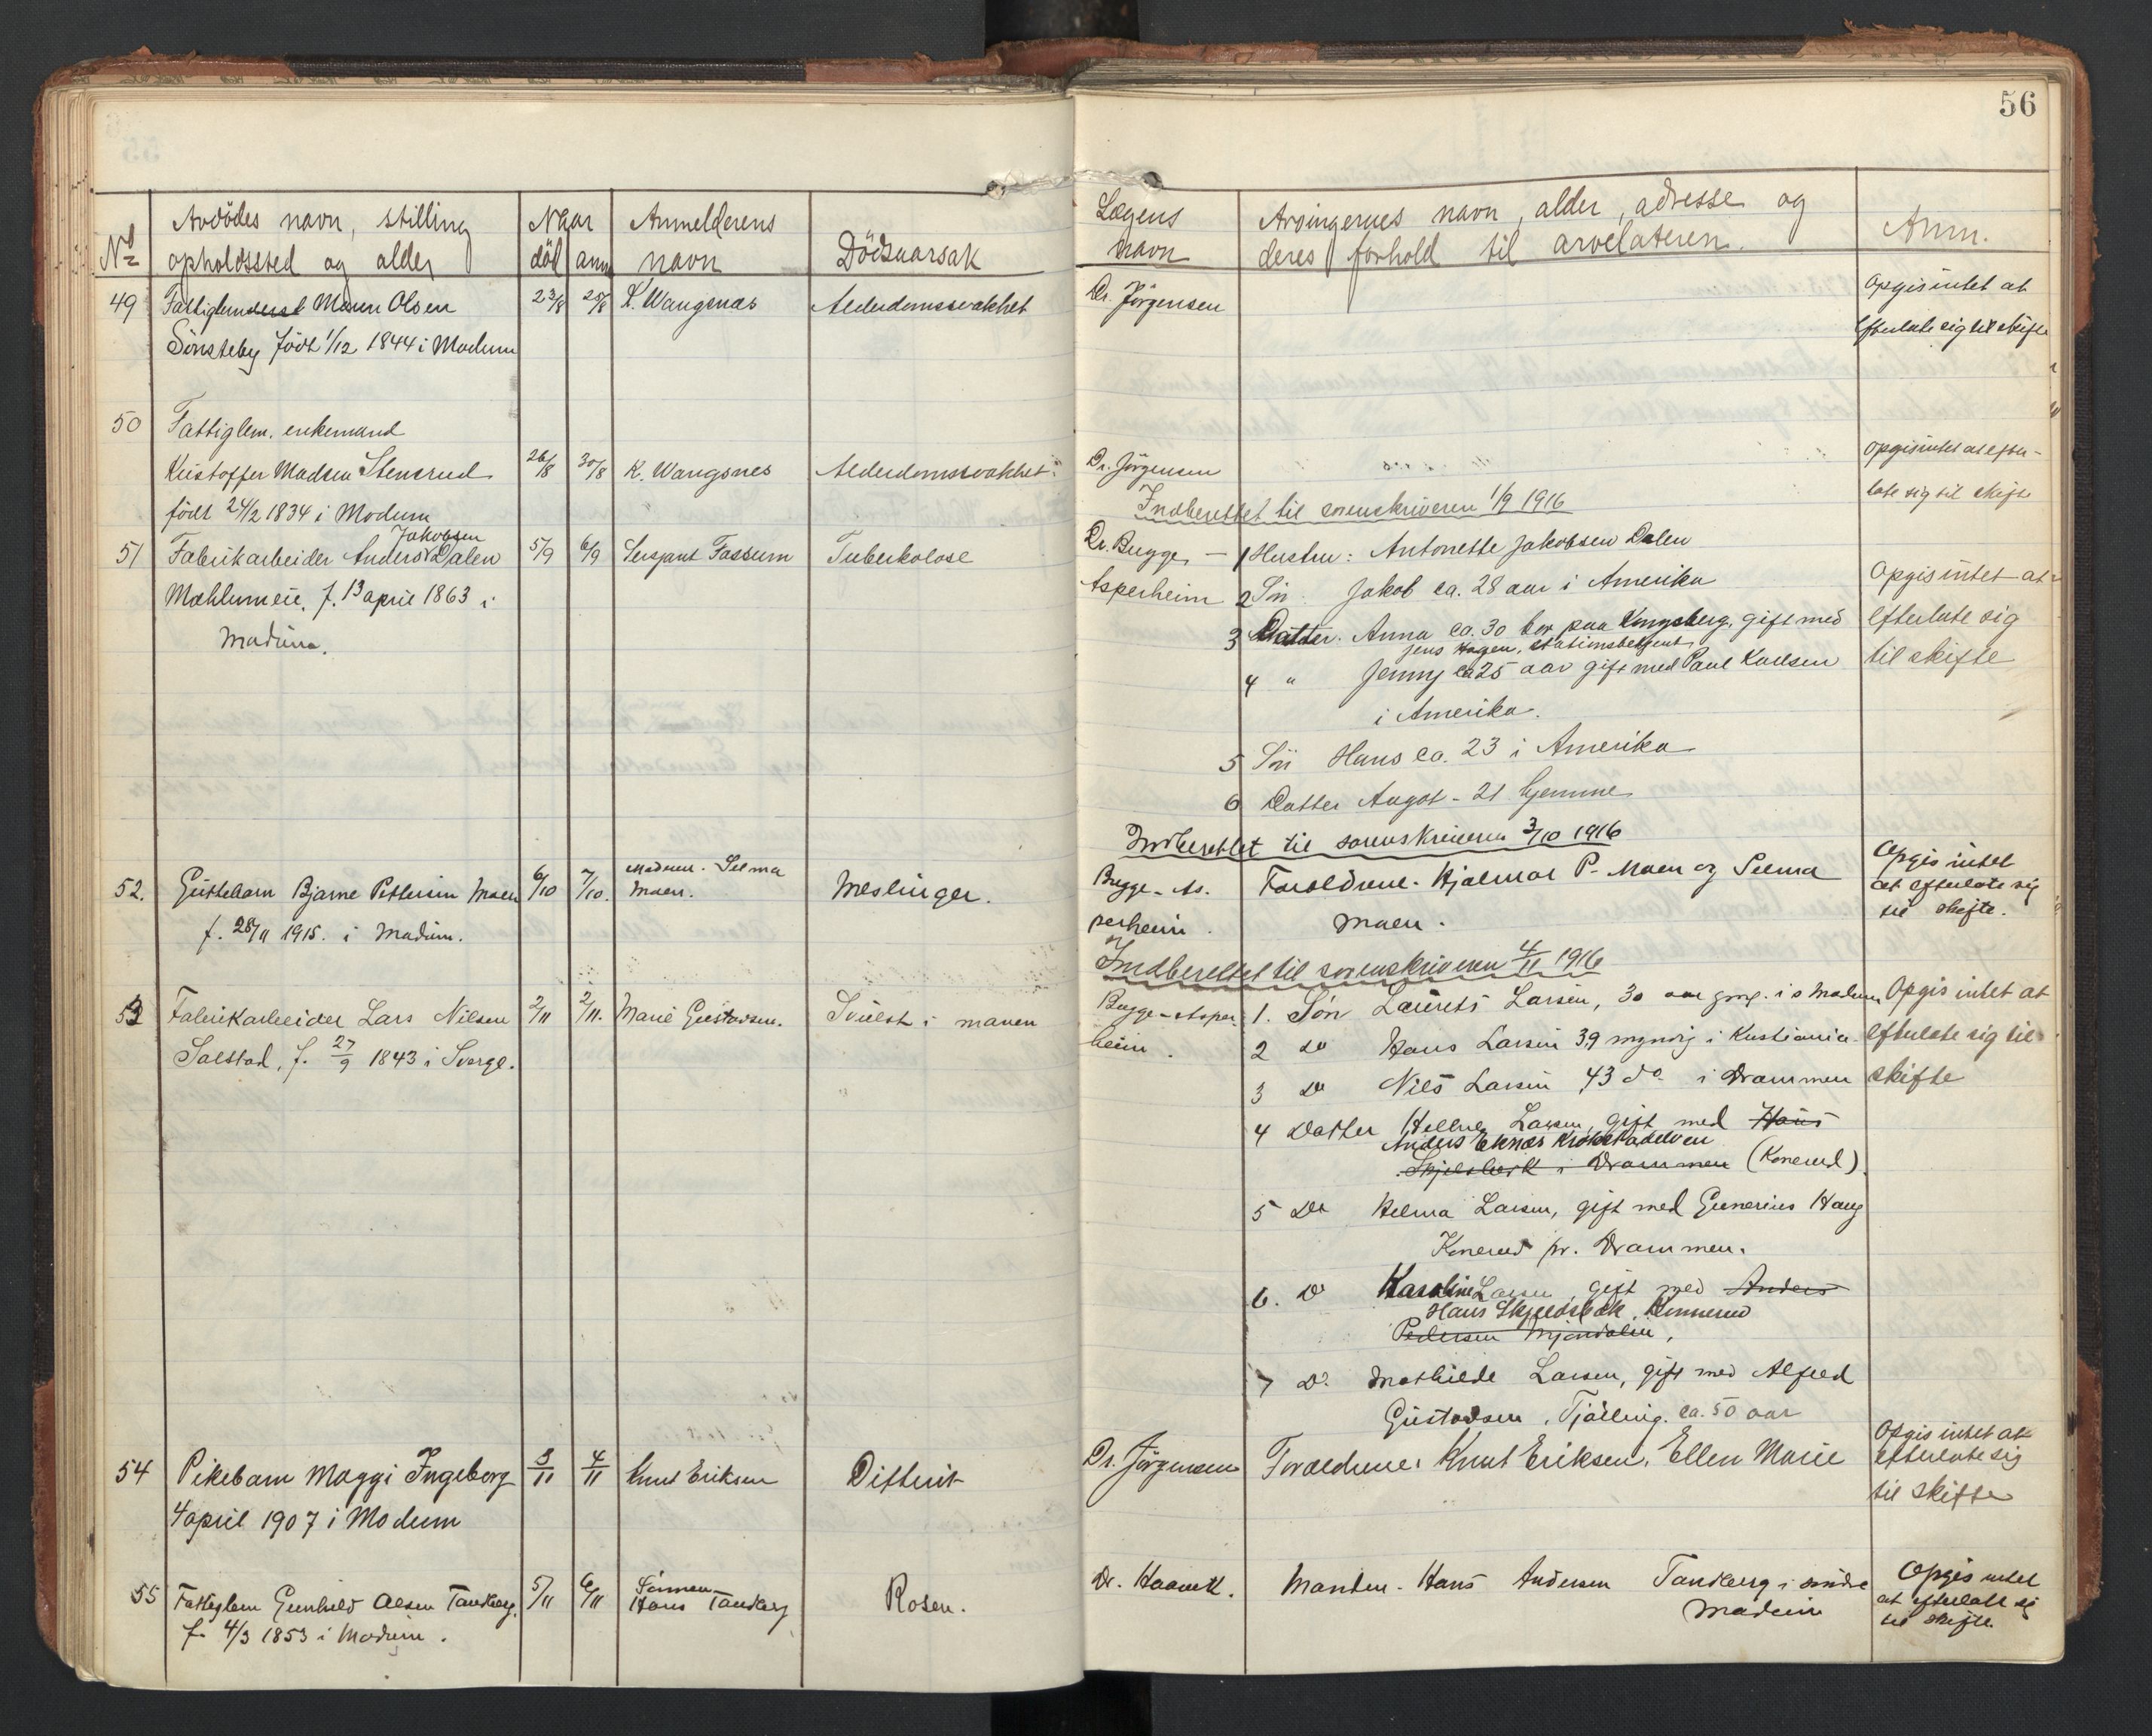 56
No
Avdödes navn, stilling
opholdssted og alder
Naar
död anm
Anmelderens
navn
Dödsaarsak
Lægens
navn
Arvingernes navn, alder, adresse og
deres forhold til arvelateren.
Anm.
49 Fattiglem Maren Olsen 23/8 25/8 K. Wangsnes Alderdomssvakhet Dr. Jörgensen Opgis intet at
Sönsteby födt 1/12 1844 i Modum efterlate sig til skifte
50 Fattiglem. enkemand
Kristoffer Madsen Stensrud 26/8 30/8 K. Wangsnes Alderdomssvakhet Dr. Jörgensen Opgis intet at efter-
födt 24/2 1834 i Modum late sig til skifte
Indberettet til sorenskriveren 1/9 1916
Jakobsen
51 Fabrikarbeider Anders Dalen 5/9 6/9 Lensmand Fossum Tuberkolose Dr. Bugge - 1 Hustru: Antonette Jakobsen Dalen
Mæhlumeie, f. 13 april 1863 i Asperheim 2 Sön. Jakob ca. 28 aar i Amerika Opgis intet at
Modum. 3 Datter. Anna ca. 30 bor paa Kongsberg, gift med efterlate sig
Jens Hagen, stationsbetjent
4 " Jenny ca 25 aar gift med Paul Karlsen til skifte
i Amerika.
5 Sön Hans ca. 23 i Amerika
6 Datter Aagot - 21 hjemme
Indberettet til sorenskriveren 3/10 1916
52. Guttebarn Bjarne Pettersen Moen 6/10 7/10. Madam. Selma Moen. Meslinger. Bugge-As- Foreldrene. Hjalmar P. Moen og Selma Opgis intet
f. 28/11 1915. i Modum. perheim. Moen. at efterlate sig
til skifte.
Indberettet til sorenskriveren 4/11 1916
53 Fabrikarbeider Lars Nilsen 2/11 2/11. Marie Gustavsen. Svulst i maven Bugge-Asper- 1. Sön Laurits Larsen, 30 aar i s Modum Opgis intet at
Solstad, f. 27/9 1843 i Sverge. heim. 2 Do Hans Larsen 39 myndig i Kristiania. efterlate sig til
3 Do Nils Larsen 43 do i Drammen skifte
4 Datter Larsen, gift med Hans
Anders Eknes Krokstadelven
i Drammen (Konerud).
5 Do Helma Larsen, gift med Gunerius Haug
Konerud pr. Drammen.
6. Do Karoline Larsen, gift med Anders
Hans Skjeldsbæk, Konnerud
Pedersen Mjøndalen,
7 Do Mathilde Larsen, gift med Alfred
Gustavsen, Tjölling. ca. 50 aar
54 Pikebarn Maggi Ingeborg 3/11 4/11 Knut Eriksen Difterit Dr. Jörgensen Foreldrene: Knut Eriksen, Ellen Marie Opgis intet at
4 april 1907 i Modum efterlate sig
til skifte
55 Fattiglem Gunhild Olsen Tandberg. 5/11 6/11 Sönnen Hans Tandberg Rosen. Dr. Manden. Hans Andersen Tandberg i söndre Opgis intet
f. 4/3 1853 i Modum. Modum at efterlate sig
til skifte.